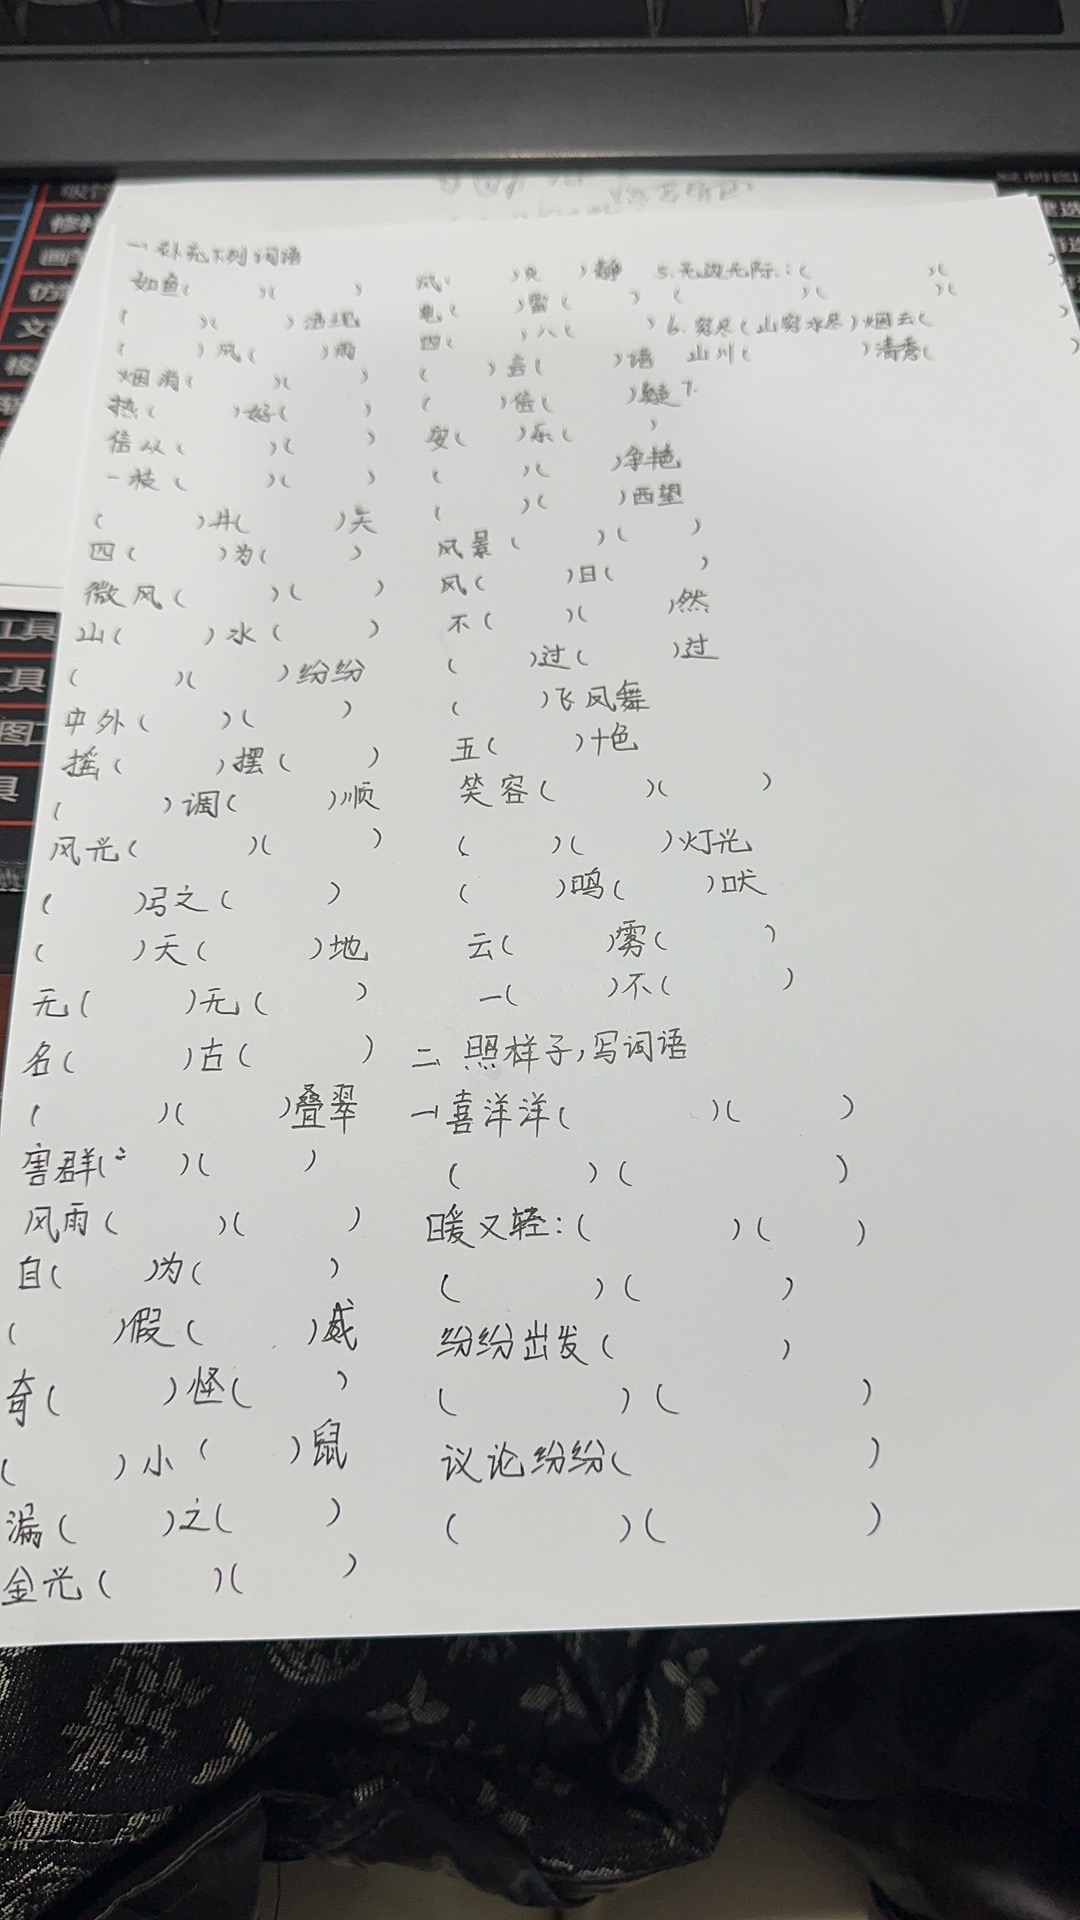 一、补充下列词语
如鱼( )( )
( )( )涌现
( )风( )雨
烟消( )( )
热( )好( )
倍从( )( )
一枝( )( )
( )井( )矢
四( )为( )
微风( )( )
山( )水( )
( )( )纷纷
中外( )( )
摇( )摆( )
( )调( )顺
风光( )( )
( )弓之( )
( )天( )地
无( )无( )
名( )古( )
( )( )叠翠
害群( )( )
风雨( )( )
自( )为( )
( )假( )威
奇( )怪( )
( )小( )鼠
漏( )之( )
金光( )( )
风( ) ( )静
电( )雷( )
四( )八( )
( )言( )语
( )信( )疑
安( )乐( )
( )( )争艳
( )( )西望
风景( )( )
风( )日( )
不( )( )然
( )过( )过
( )飞凤舞
五( )十色
笑容( )( )
( )( )灯光
( )鸣( )吠
云( )雾( )
一( )不( )
二 照样子,写词语
一喜洋洋( )( )
( )( )
暖又轻:( )( )
( )( )
纷纷出发( )
( )( )
议论纷纷( )
( )( )
5.无边无际:( )( )
( )( )( )
6.穷尽(山穷水尽)烟云( )
山川( )清秀( )
工具
工具
图工
具
修补
画笔